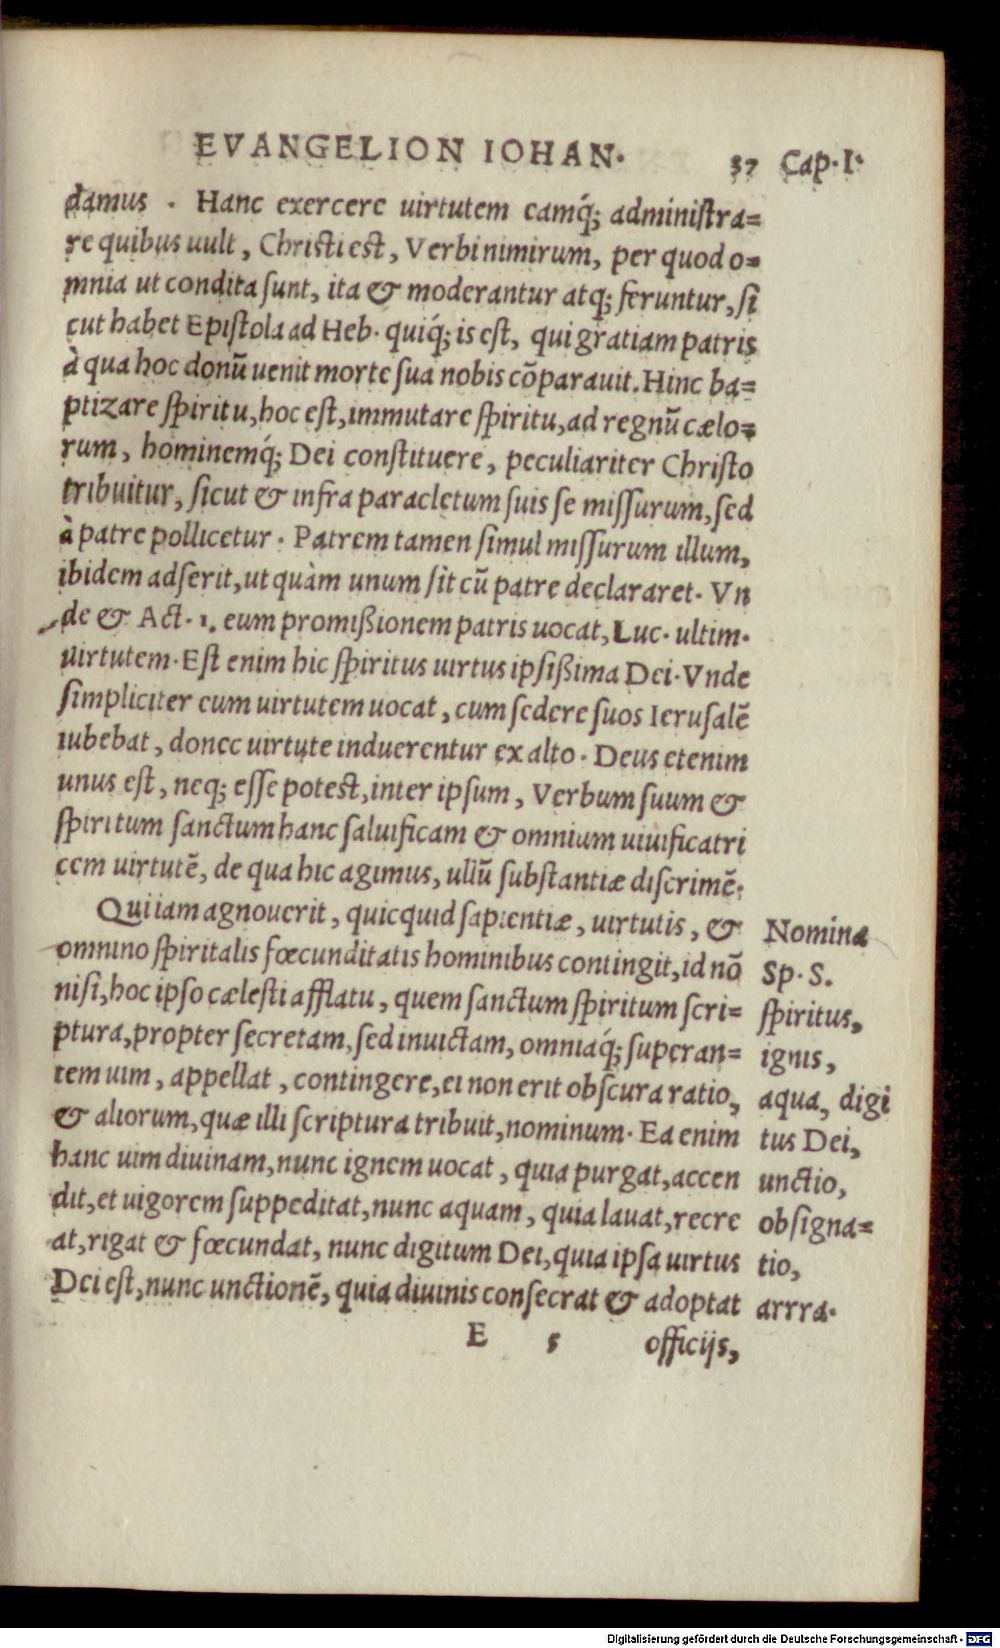 EVANGELION IOHAN.
37 Cap. I.
damus . Hanc exercere uirtutem eamq́; administra=
re quibus uult, Christi est, Verbi nimirum, per quod o=
mnia ut condita sunt, ita & moderantur atq; feruntur, si
cut habet Epistola ad Heb. quiq́; is est, qui gratiam patris
à qua hoc donū uenit morte sua nobis cōparauit. Hinc ba=
ptizare spiritu, hoc est, immutare spiritu, ad regnū cælo=
rum, hominemq́; Dei constituere, peculiariter Christo
tribuitur, sicut & infra paracletum suis se missurum, sed
à patre pollicetur. Patrem tamen simul missurum illum,
ibidem adserit, ut quàm unum sit cū patre declararet. Vn
de & Act. 1. eum promißionem patris uocat, Luc. ultim.
uirtutem. Est enim hic spiritus uirtus ipsißima Dei. Vnde
simpliciter eum uirtutem uocat, cum sedere suos Ierusalē
iubebat, donec uirtute induerentur ex alto. Deus etenim
unus est, neq; esse potest, inter ipsum, Verbum suum &
spiritum sanctum hanc saluificam & omnium uiuificatri
cem uirtutē, de qua hic agimus, ullū substantiæ discrimē.
Qui iam agnouerit, quicquid sapientiæ, uirtutis, &
omnino spiritalis fœcunditatis hominibus contingit, id nō
nisi, hoc ipso cælesti afflatu, quem sanctum spiritum scri=
ptura, propter secretam, sed inuictam, omniaq́; superan=
tem uim, appellat, contingere, ei non erit obscura ratio,
& aliorum, quæ illi scriptura tribuit, nominum. Ea enim
hanc uim diuinam, nunc ignem uocat, quia purgat, accen
dit, et uigorem suppeditat, nunc aquam, quia lauat, recre
at, rigat & fœcundat, nunc digitum Dei, quia ipsa uirtus
Dei est, nunc unctionē, quia diuinis consecrat & adoptat
Nomina
Sp. S.
spiritus,
ignis,
aqua, digi
tus Dei,
unctio,
obsigna=
tio,
arrra.
E 5 officijs,
Digitalisierung gefördert durch die Deutsche Forschungsgemeinschaft - DFG